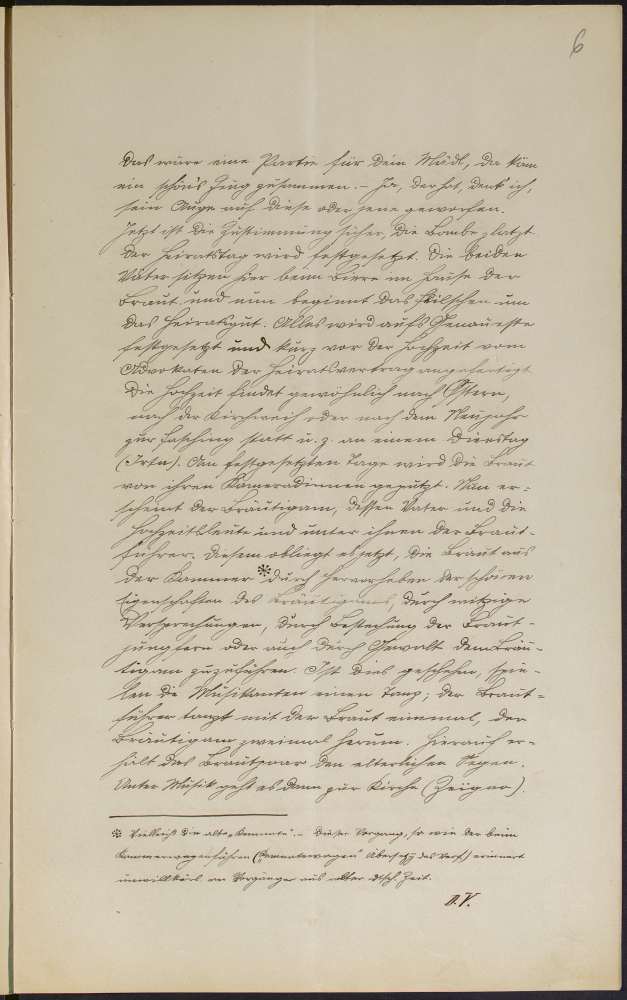 6
Das wäre eine Partie für Dein Mädl, da käm
ein schön's Zeug zusammen. – Ja, der hat, denk' ich,
sein Auge auf diese oder jene geworfen.
Jetzt ist die Zustimmung sicher, die Bombe platzt.
Der Heiratstag wird festgesetzt. Die beiden
Väter sitzen hier beim Biere im Hause der
Braut und nun beginnt das Feilschen um
das Heiratsgut. Alles wird aufs Genaueste
festgesetzt und kurz vor der Hochzeit vom
Advokaten der Heiratsvertrag angefertigt.
Die Hochzeit findet gewöhnlich nach Ostern,
nach der Kirchweih oder nach dem Neujahr
zur Fasching statt u. z. an einem Dienstag
(Irta). Am festgesetzten Tage wird die Braut
von ihren Kameradinnen geputzt. Nun er=
scheint der Bräutigam, dessen Vater und die
Hochzeitsleute und unter ihnen der Braut-
führer. Diesem obliegt es jetzt, die Braut aus
der Kammer * durch Hervorheben der schönen
Eigenschaften des Bräutigams, durch witzige
Versprechungen, durch Bestechung der Braut-
jungfern oder auch durch Gewalt dem Bräu-
tigam zuzuführen. Ist dies geschehen, spie-
len die Musikanten einen Tanz; der Braut=
führer tanzt mit der Braut einmal, der
Bräutigam zweimal herum. Hierauf er=
hält das Brautpaar den elterlichen Segen.
Unter Musik geht es dann zur Kirche
* Vielleicht die alte „Kemmate“. – Dieser Vorgang, so wie der beim
Kammerwagenführen („Kemnatewagen“ des Verf.) erinnert
unwillkürl. an Vorgänge aus alter dtsch. Zeit.
D.V.